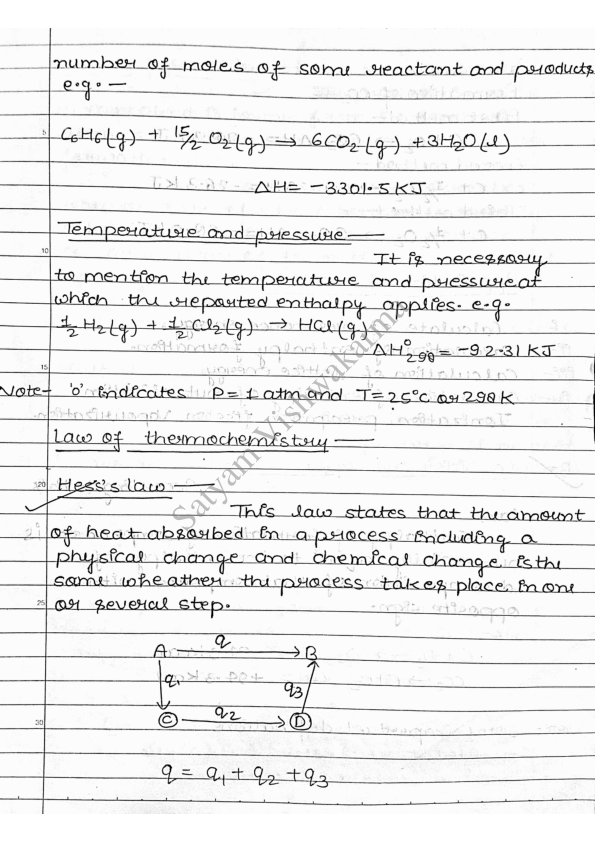 number of moles of some reactant and products
e.g. —
5
C6H6(g) + 15/2 O2(g) → 6CO2(g) + 3H2O(l)
ΔH= -3301.5 KJ
Temperature and pressure —
10
It is necessary
to mention the temperature and pressure at
which the reported enthalpy applies. e.g.
1/2 H2(g) + 1/2 Cl2(g) → HCl(g)
ΔH°298 = -92.31 KJ
15
Note- 'o' indicates P=1 atm and T=25°C or 298K
Law of thermochemistry —
20
Hess's law —
This law states that the amount
of heat absorbed in a process including a
physical change and chemical change is the
same wheather the process takes place in one
25
or several step.
A q B
q1 q3
C q2 D
30
q = q1 + q2 + q3
Satyam Vishwakarma